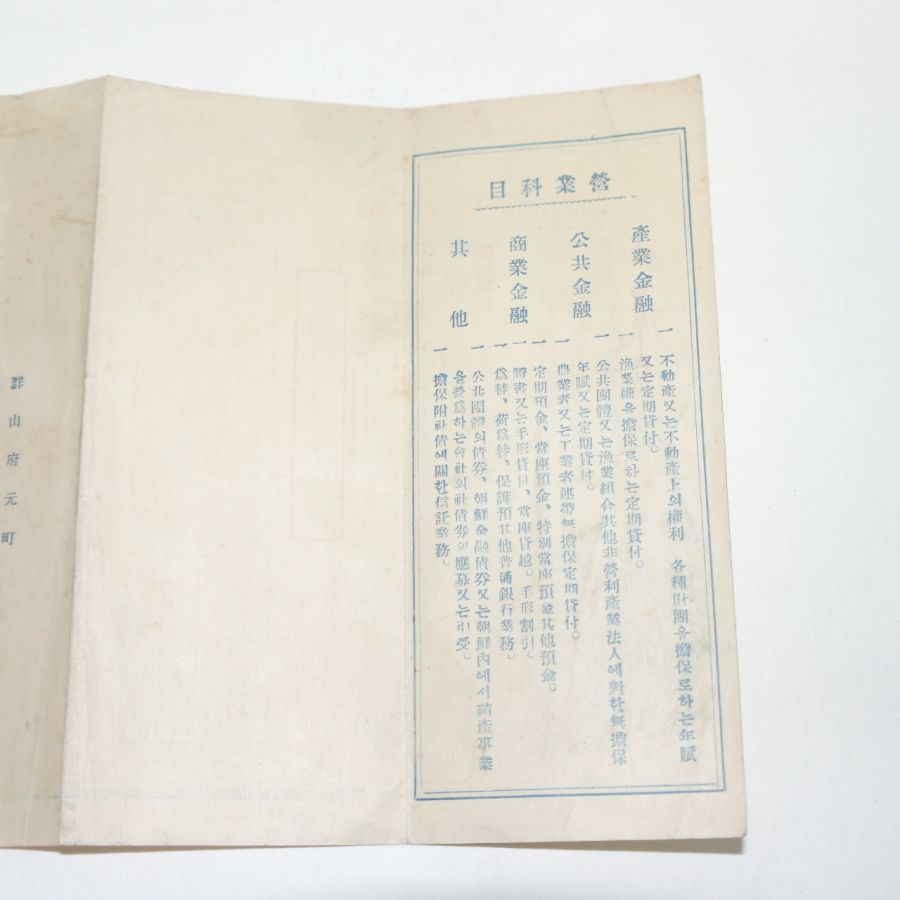 營業科目
產業金融
一 不動產又는不動產上의權利 各種財團을擔保로하는年賦
又는定期貸付。
一 漁業權을擔保로하는定期貸付。
公共金融
一 公共團體又는漁業組合其他非營利產業法人에對한無擔保
年賦又는定期貸付。
一 農業者又는工業者連帶無擔保定期貸付。
商業金融
一 定期預金、當座預金、特別當座預金其他預金。
一 證書又는手形貸付、當座貸越。手形割引。
一 爲替、荷爲替、保護預其他普通銀行業務。
其他
一 公共團體의債券、朝鮮金融債券又는朝鮮內에서殖產事業
을營爲하는會社의社債券의應募又는引受。
一 擔保附社債에關한信託業務。
山府元町